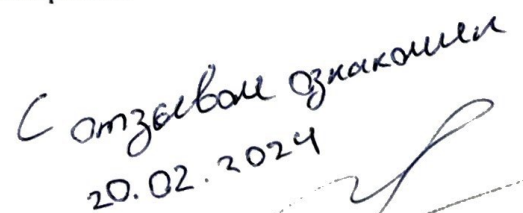 С отзывом ознакомлен
20.02.2024